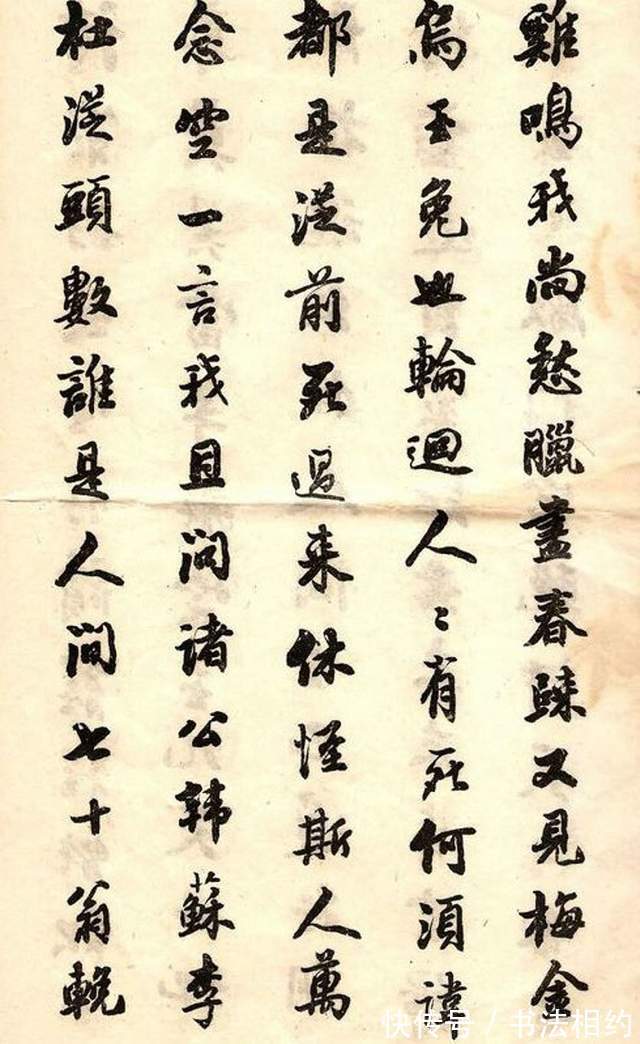 雞鳴我尚愁臘盡春歸又見梅金
烏玉兔輪迴人〻有死何須諱
都是從前死過来休怪斯人萬
念空一言我且問諸公韓蘇李
杜從頭數誰是人間七十翁輓
快传号/书法相约